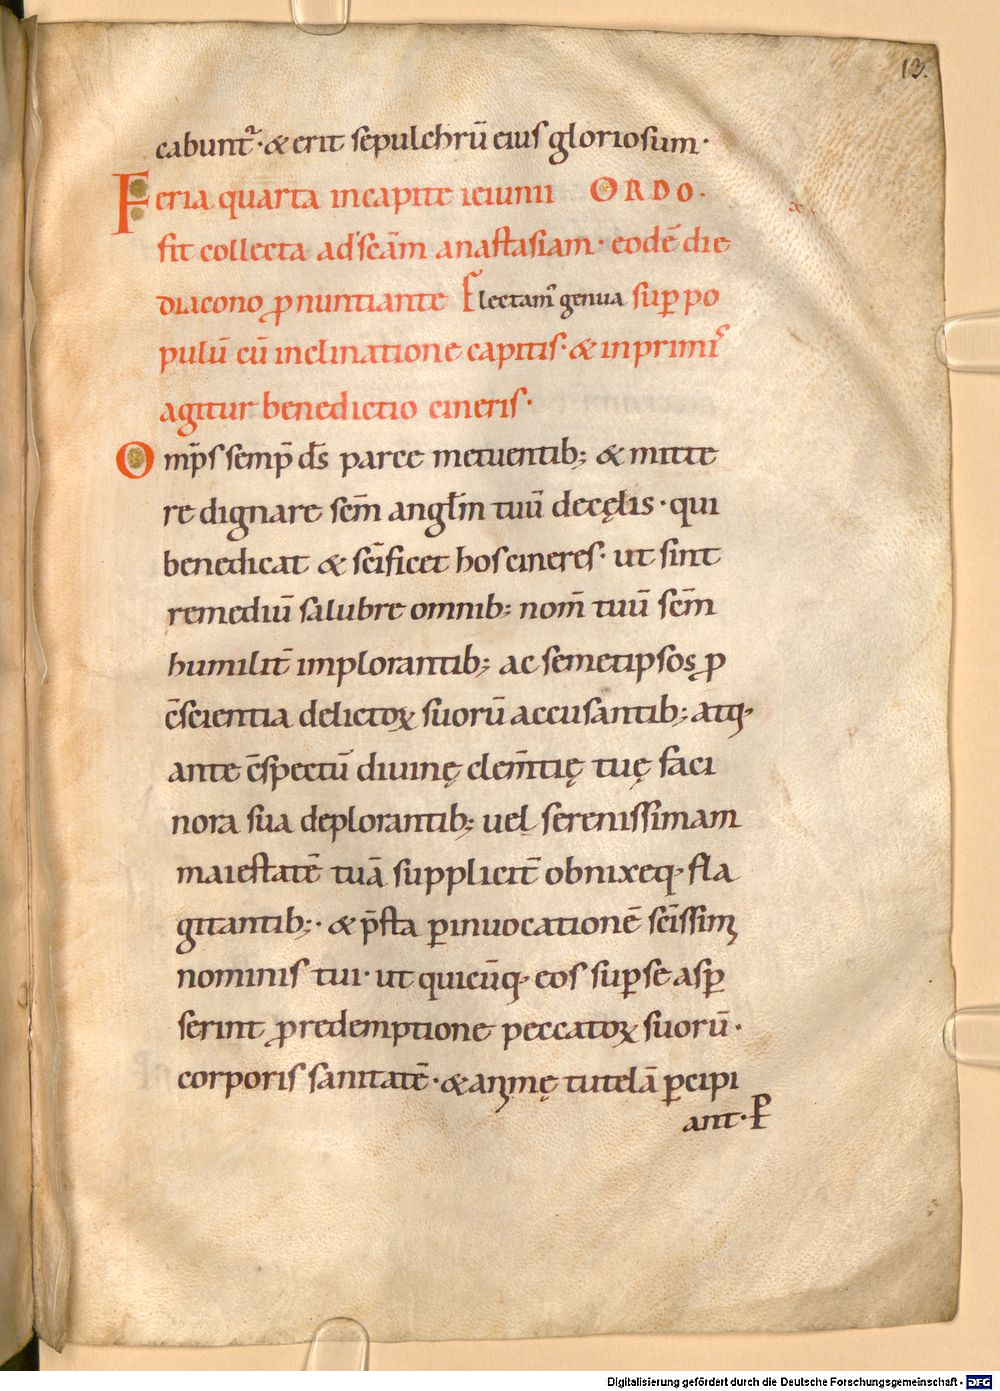 13.
cabunt᷑· & erit sepulchrū eius gloriosum·
Feria quarta incapite ieiunii ORDO·
fit collecta ad scām anastasiam· eodē die
diacono ꝓnuntiante Flectam᷒ genua suꝑ po
pulū cū inclinatione capitis· & inprimis
agitur benedictio cineris·
Omp̄s semp̄ ds̄ parce metuentib; & mitte
re dignare scm̄ anglm̄ tuū decęlis· qui
benedicat & scīficet hos cineres· ut sint
remediū salubre omnib; nom̄ tuū scm̄
humilit̄ implorantib; ac semetipsos ꝓ
c̄scientia delictoꝝ suorū accusantib; atq·
ante c̄spectū diuinę clem̄tię tuę faci
nora sua deplorantib; uel serenissimam
maiestatē tuā supplicit̄ obnixeq· fla
gitantib;· & p̄sta ꝑinuocationē scīssimi
nominis tui· ut quicūq· eos suꝑse asꝑ
serint ꝓredemptione peccatoꝝ suorū·
corporis sanitatē· & animę tutelā ꝑcipi
ant· P̄
Digitalisierung gefördert durch die Deutsche Forschungsgemeinschaft - DFG